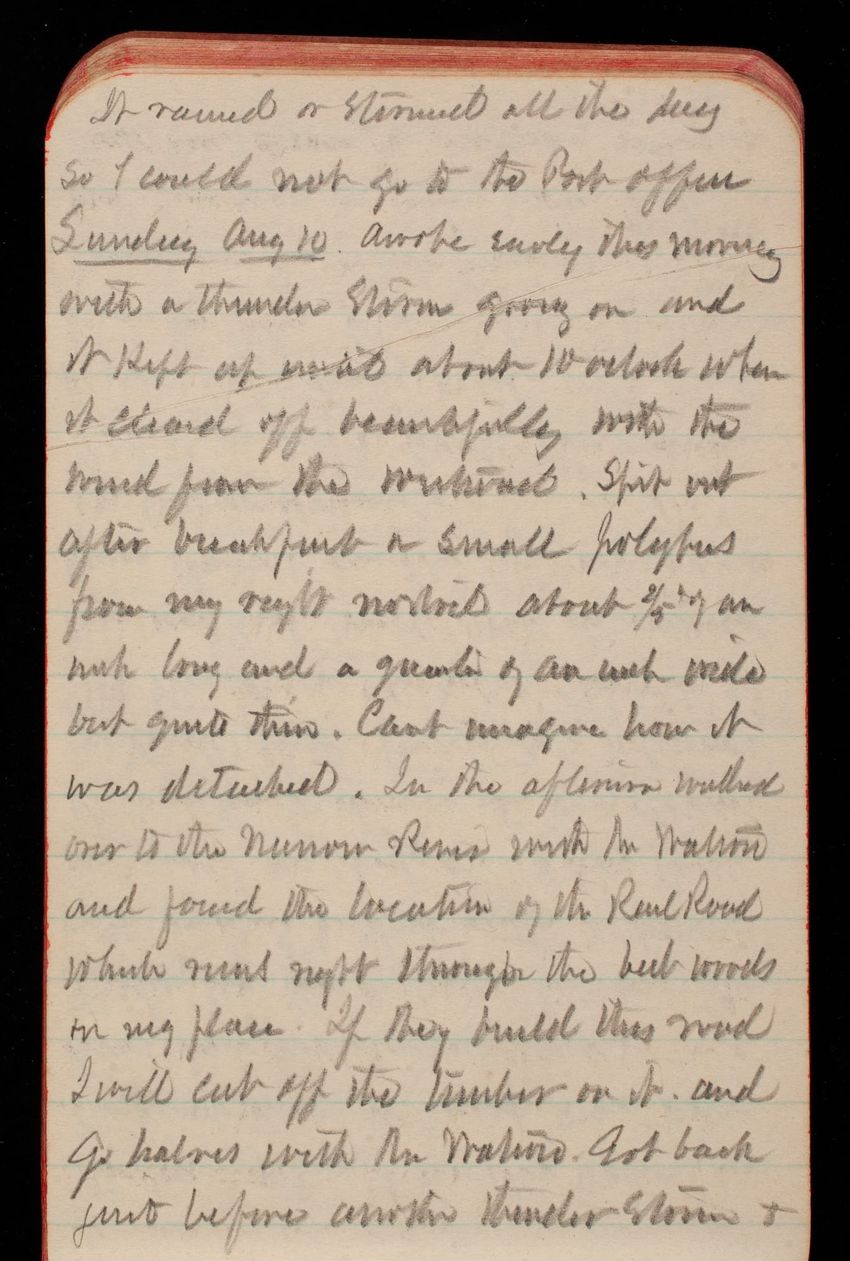 It rained or Stormed all the day
so I could not go to the Post office
Sunday Aug 10. Awoke early this morning
with a thunder Storm going on and
it Kept up until about 10 oclock when
it cleard off beautifully with the
wind from the westward. Spit out
after breakfast a small polybus
from my right nostril about 2/5 of an
inch long and a quarter of an inch wide
but quite thin. Cant imagine how it
was detached. In the afternoon walked
over to the Narrow River with Mr
and found the location of the Rail Road
which runs right through the best woods
on my place. If they build this road
I will cut off the timber on it. and
Go halves with Mr Got back
just before another thunder Storm &